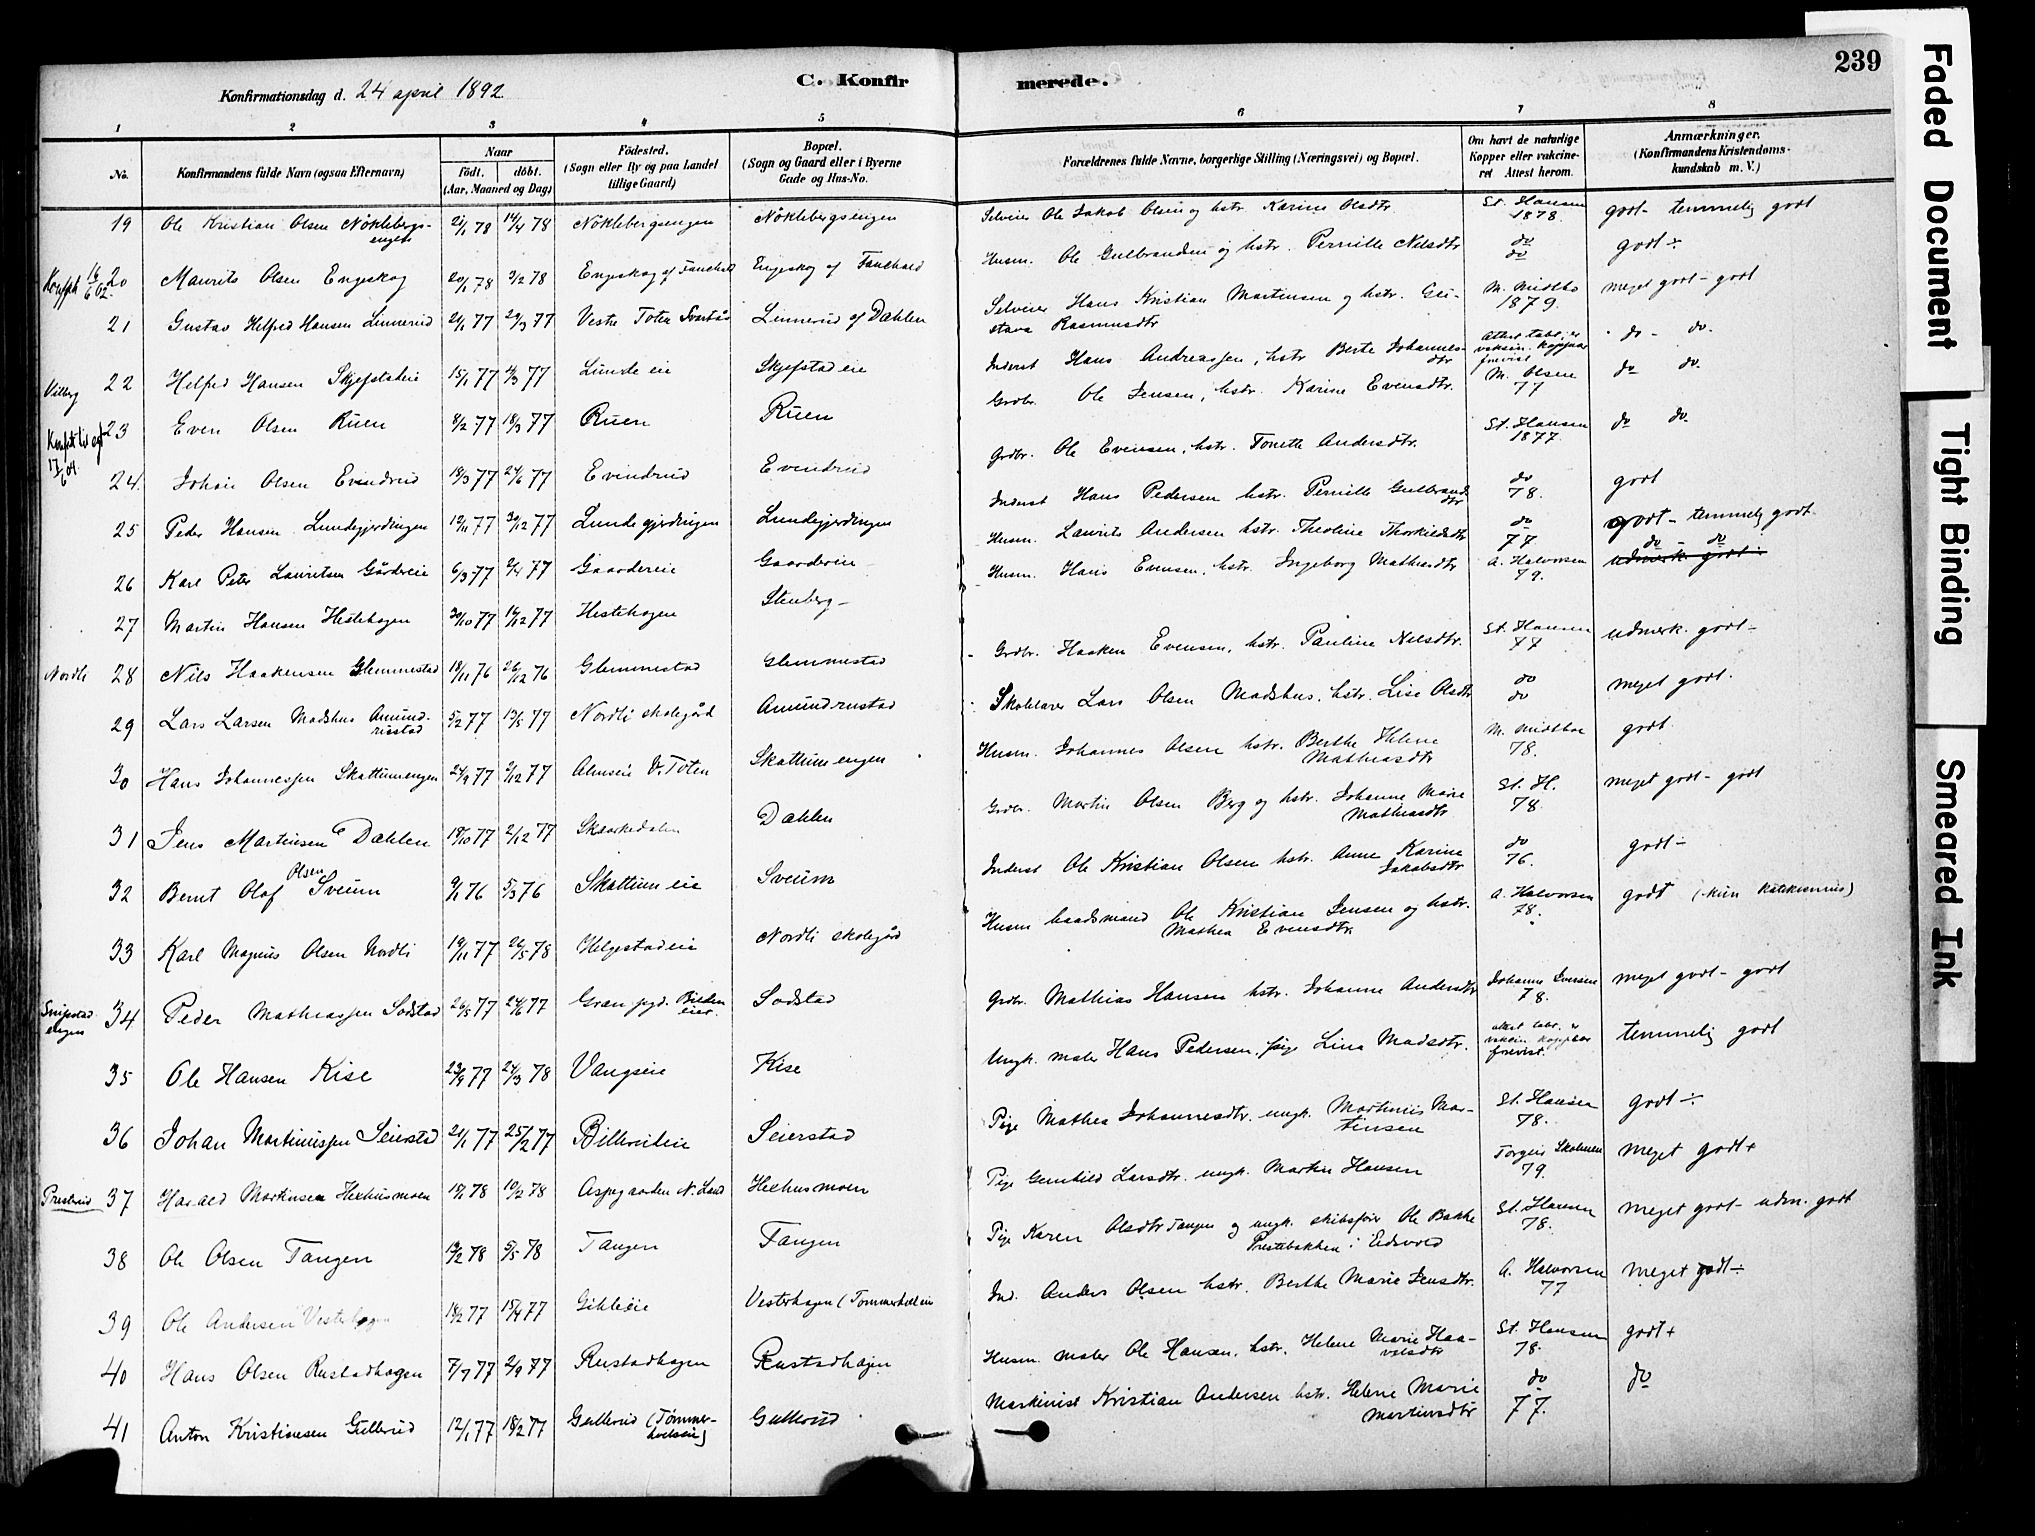 239
Konfirmationsdag d. 24 april 1892
C. Konfirmerede.
1 2 3 4 5 6 7 8
No. Konfirmandens fulde Navn (ogsaa Efternavn) Naar födt. döbt. (Aar, Maaned og Dag) Födested. (Sogn eller By og paa Landet tillige Gaard) Bopæl. (Sogn og Gaard eller i Byerne Gade og Hus-No. Forældrenes fulde Navne, borgerlige Stilling (Næringsvei) og Bopæl. Om havt de naturlige Kopper eller vakcineret Attest herom. Anmærkninger. (Konfirmandens Kristendomskundskab m. V.)
19 Ole Kristian Olsen Nöklebergsengen 21/1 78 14/4 78 Nöklebergsengen Nöklebergsengen Selveier Ole Jakob Olsen og hstr. Karine Olsdtr. St. Hansen 1878. godt - temmelig godt
20 Maurits Olsen Engeskog 20/1 78 3/2 78 Engeskog af Fauchald Engeskog af Fauchald Husm. Ole Gulbrandsen og hstr. Pernille Nilsdtr do do godt ÷
21 Gustav Helfred Hansen Linnerud 77 77 Vestre Toten Linnerud af Dæhlen Selveier Hans Kristian Martensen og hstr. Gustava Rasmusdtr M. Midtbö 1879. meget godt - godt
Vilberg 22 Helfred Hansen 15/1 77 77 Lunde eie Skjefstad eie Inderst Hans Andreassen, hstr Berte Johannesdtr Attest tabt; er vaksin. koppar forevist do - do.
23 Even Olsen Ruen 8/2 77 18/3 77 Ruen Ruen Grdbr. Ole Jensen, hstr. Karine Evensdtr. M. Olsen 77 do do.
24. Johan Olsen Evindrud 18/3 77 77 Evindrud Evindrud Grdbr. Ole Evensen, hstr. Tonette Andersdtr. St. Hansen 1877. do do.
25 Peder Hansen Lundegjerdingen 77 77 Lunde gjerdingen Lundegjerdingen Inderst Hans Pedersen hstr. Pernille Gulbrandsdtr do 78. godt
26 Karl Peter Lauritsen Gårdereie 6/3 77 77 Gaardereie Gaardereie Husm. Laurits Andersen hstr. Theoline Thorkildsdtr do 77 godt - temmelig godt
27 Martin Hansen Hestehagen 30/10 77 77 Hestehagen Stenberg - Husm. Hans Evensen, hstr. Ingeborg Mathiasdtr A. Halvorsen 79. do - do
Nordli 28 Nils Haakensen Glemmestad 18/11 76 26/12 76 Glemmestad Glemmestad Grdbr. Haaken Evensen, hstr. Pauline Nilsdtr. St. Hansen 77 udmerk. godt -
29 Lars Larsen Madshus Amundrustad 5/2 77 13/5 77 Nordli skolegård Amundrustad Skolelærer Lars Olsen Madshus, hstr. Lise Olsdtr do do meget godt.
30 Hans Johannessen Skattumengen 24/9 77 77 V. Toten Skattum engen Husm. Johannes Olsen hstr. Berthe Helene Mathiasdtr M. Midtbö 78. godt
31 Jens Martinsen Dæhlen 18/10 77 2/12 77 Dæhlen Grdbr. Martin Olsen Berg og hstr. Johanne Marie Mathiasdtr St. H. 78. meget godt - godt
32 Bernt Olaf Olsen Sveum 76 5/3 76 Skattum eie Sveum Inderst Ole Kristian Olsen hstr. Anne Karine Jakobsdtr do 76. godt -
33 Karl Magnus Olsen Nordli 19/11 77 26/5 78 Helgestadeie Nordli skolegård Husm baadsmand Ole Kristian Jensen og hstr. Mathea Evensdtr. A. Halvorsen 78. godt (kun Katekismus)
34 Peder Mathiassen Sodstad 26/5 77 24/6 77 Gran pgd. Sodstad Grdbr. Mathias Hansen hstr. Johanne Andersdtr Johanne Iversen 78. meget godt - godt
35 Ole Hansen Kise 23/9 77 24/3 78 Vangseie Kise Ungk. maler Hans Pedersen, pige Lina Madsdtr. attest tabt. er vaksin koppar forevist. temmelig godt
36 Johan Martiniussen Seierstad 21/1 77 25/2 77 Billerudeie Seierstad Pige Mathea Johannesdtr. ungk. Martinius Martinsen St. Hansen 78. godt ÷
Presterud 37 Harald Martinsen Hexhusmoen 78 10/2 78 Aspegaarden N. Land Hexhusmoen Pige Gunhild Larsdtr. ungk. Martin Hansen Torgeir Skolmen 79. meget godt +
38 Ole Olsen Tangen 78 5/5 78 Tangen Tangen Pige Karen Olsdtr Tangen og ungk. skibsförer Ole Bakke Prestebakken i Eidsvold St. Hansen 78. meget godt - udm. godt
39 Ole Andersen Vesterhagen 18/2 77 15/4 77 Gihleeie Vesterhagen (Tommerholeie Ind. Anders Olsen hstr. Berthe Marie Jensdtr. A. Halvorsen 77 meget godt ÷
40 Hans Olsen Rustadhagen 7/7 77 2/9 77 Rustadhagen Rustadhagen Husm. maler Ole Hansen. hstr. Helene Marie Haavelsdtr St. Hansen 78. godt +
41 Anton Kristiansen Gullerud 12/1 77 18/2 77 Gullerud (Tømmerholseie) Gullerud Maskinist Kristian Andersen hstr. Helene Marie Martinsdtr do 77. do
Faded Document
Tight Binding
Smeared Ink